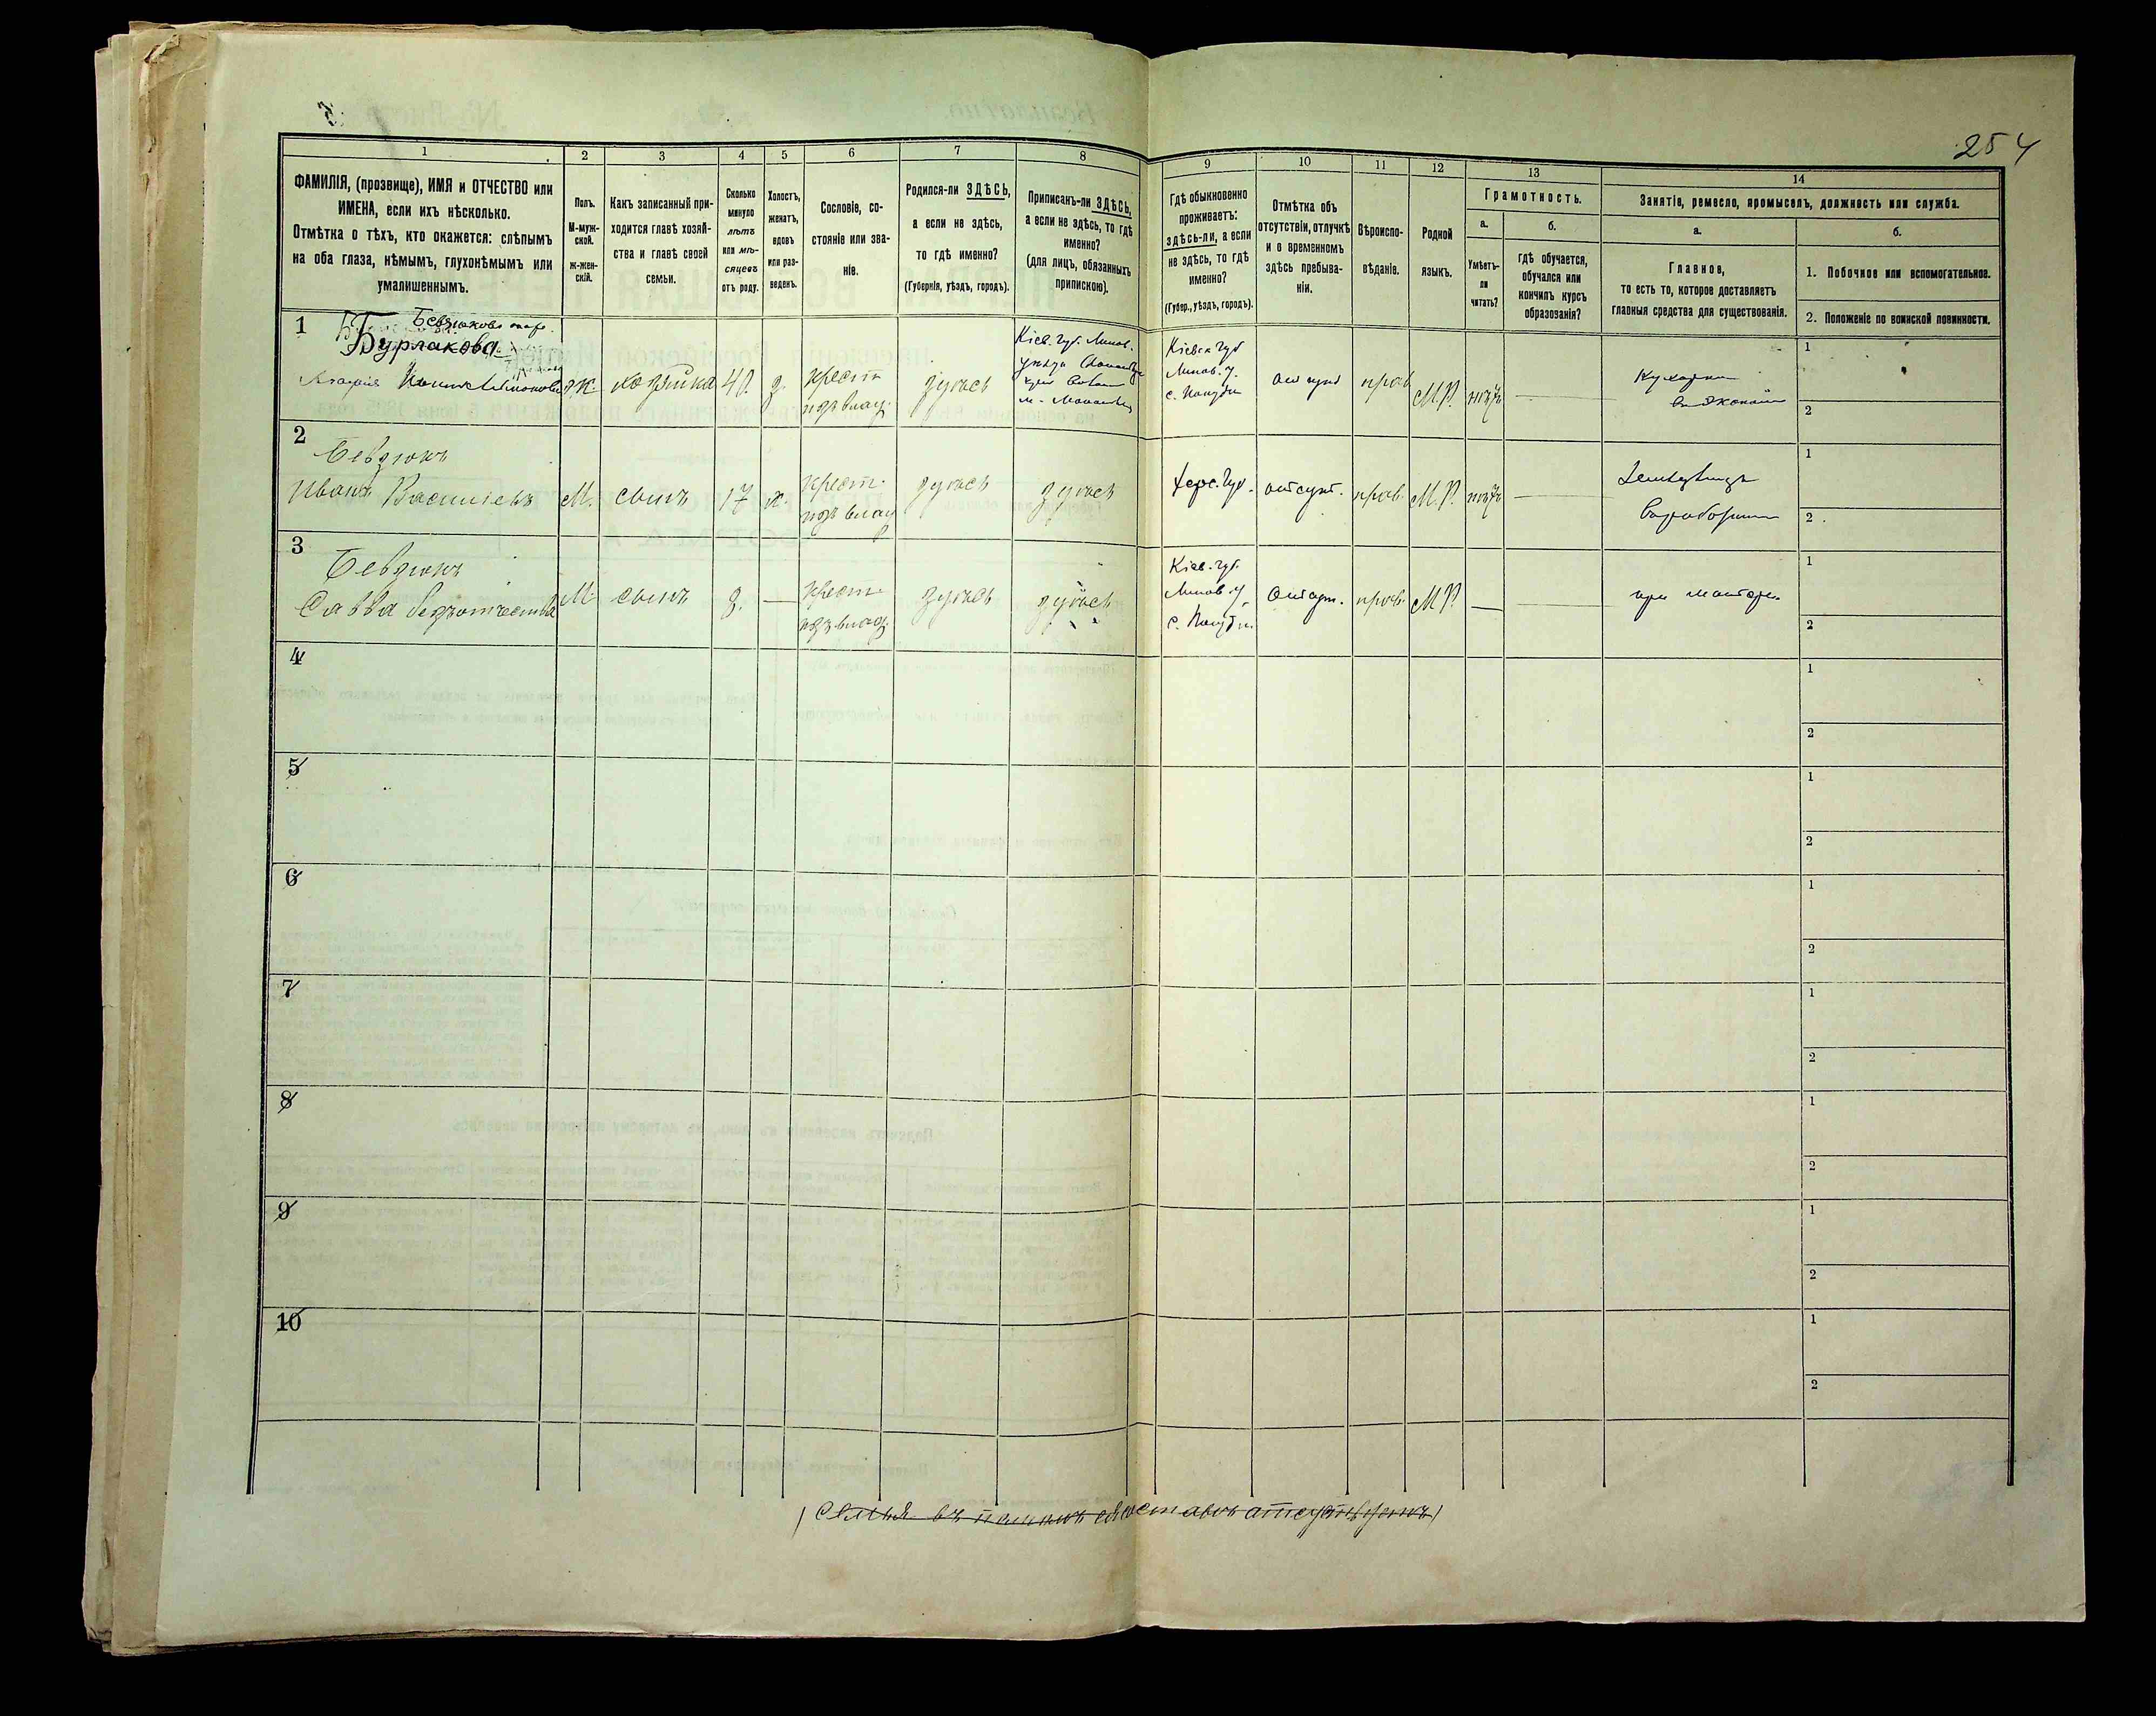 254
1 2 3 4 5 6 7 8 9 10 11 12 13 14
ФАМИЛІЯ, (прозвище), ИМЯ и ОТЧЕСТВО или
ИМЕНА, если ихъ нѣсколько.
Отмѣтка о тѣхъ, кто окажется: слѣпымъ
на оба глаза, нѣмымъ, глухонѣмымъ или
умалишеннымъ.
Полъ.
М-муж-
ской.
Ж-жен-
скій.
Какъ записанный при-
ходится главѣ хозяй-
ства и главѣ своей
семьи.
Сколько
минуло
лѣтъ
или мѣ-
сяцевъ
отъ роду.
Холостъ,
женатъ,
вдовъ
или раз-
веденъ.
Сословіе, со-
стояніе или зва-
ніе.
Родился-ли ЗДѢСЬ,
а если не здѣсь,
то гдѣ именно?
(Губернія, уѣздъ, городъ).
Приписанъ-ли ЗДѢСЬ,
а если не здѣсь, то гдѣ
именно?
(для лицъ, обязанныхъ
припискою).
Гдѣ обыкновенно
проживаетъ:
здѣсь-ли, а если
не здѣсь, то гдѣ
именно?
(Губер., уѣздъ, городъ).
Отмѣтка объ
отсутствіи, отлучкѣ
и о временномъ
здѣсь пребыва-
ніи.
Вѣроиспо-
вѣданіе.
Родной
языкъ.
Грамотность.
а.
Умѣетъ-
ли
читать?
б.
гдѣ обучается,
обучался или
кончилъ курсъ
образованія?
Занятія, ремесло, промыселъ, должность или служба.
а.
Главное,
то есть то, которое доставляетъ
главныя средства для существованія.
б.
1. Побочное или вспомогательное.
2. Положеніе по воинской повинности.
1
Бурлакова
ж.
хозяйка
крест.
изъ влад.
здѣсь
Кіев. губ. Липов.
Кіевск губ
Липов. у.
отсут
прав
М.Р.
нѣтъ
Кухарка
1
2
2
Бевзюкъ
Иванъ Васильевъ
М.
сынъ
17
х.
крест.
изъ влад
здѣсь
здѣсь
Херс. губ.
отсут.
прав.
М.Р.
нѣтъ
1
2
3
Бевзюкъ
Савва безъотчества
М.
сынъ
крест
изъ влад.
здѣсь
здѣсь
Кіев. губ.
Липов. у
отсут.
прав.
М.Р.
при матери
1
2
4
1
2
5
1
2
6
1
2
7
1
2
8
1
2
9
1
2
10
1
2
(Семья въ полномъ составѣ отсутствуетъ)